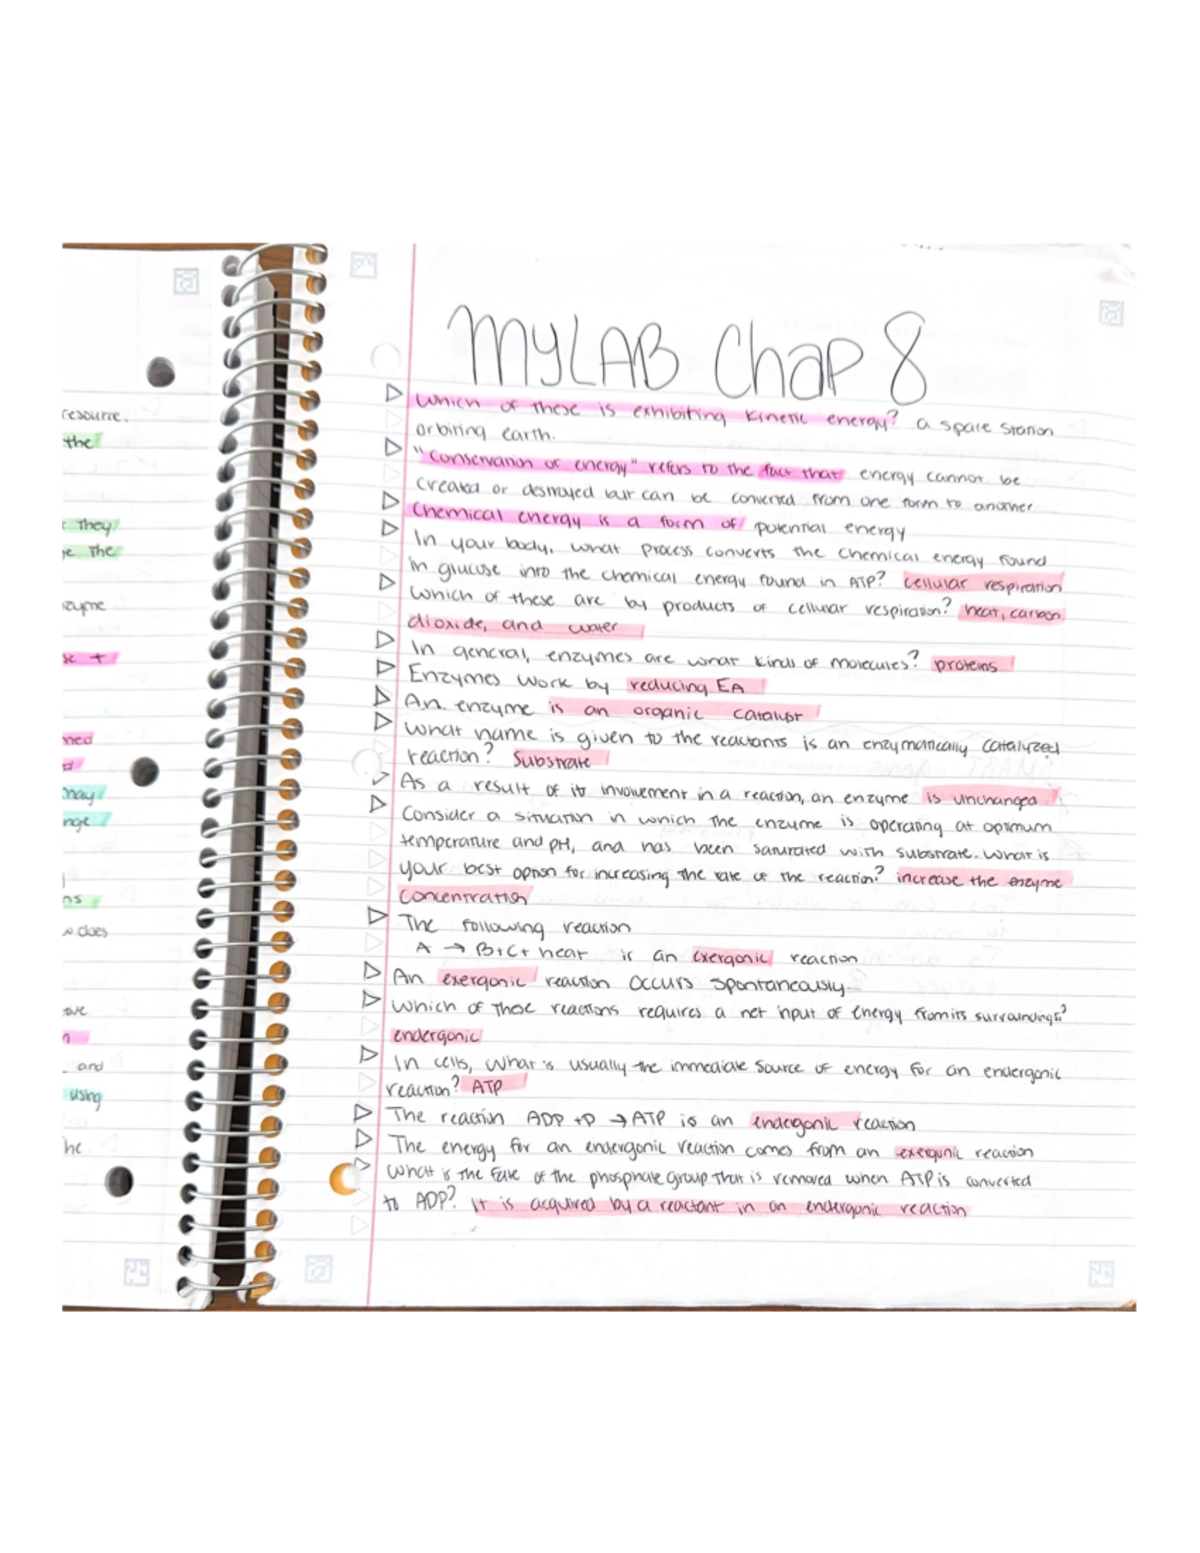 resource.
the
they
the
zyme
se +
ned
d
may
nge
ns
does
ove
n
and
using
he
MYLAB Chap 8
Which of these is exhibiting kinetic energy? a space station
orbiting earth.
"Conservation of energy" refers to the fact that energy cannot be
created or destroyed but can be converted from one form to another
Chemical energy is a form of potential energy
In your body, what process converts the chemical energy found
in glucose into the chemical energy found in ATP? cellular respiration
Which of these are by products of cellular respiration? heat, carbon
dioxide, and water
In general, enzymes are what kinds of molecules? proteins
Enzymes work by reducing EA
An enzyme is an organic catalyst
What name is given to the reactants is an enzymatically catalyzed
reaction? Substrate
As a result of its involvement in a reaction, an enzyme is unchanged
Consider a situation in which the enzyme is operating at optimum
temperature and pH, and has been saturated with substrate. What is
your best option for increasing the rate of the reaction? increase the enzyme
concentration
The following reaction
A → B+C+ heat is an exergonic reaction
An exergonic reaction occurs spontaneously
Which of these reactions requires a net input of energy from its surroundings?
endergonic
In cells, what is usually the immediate source of energy for an endergonic
reaction? ATP
The reaction ADP +P → ATP is an endergonic reaction
The energy for an endergonic reaction comes from an exergonic reaction
What is the fate of the phosphate group that is removed when ATP is converted
to ADP? It is acquired by a reactant in an endergonic reaction